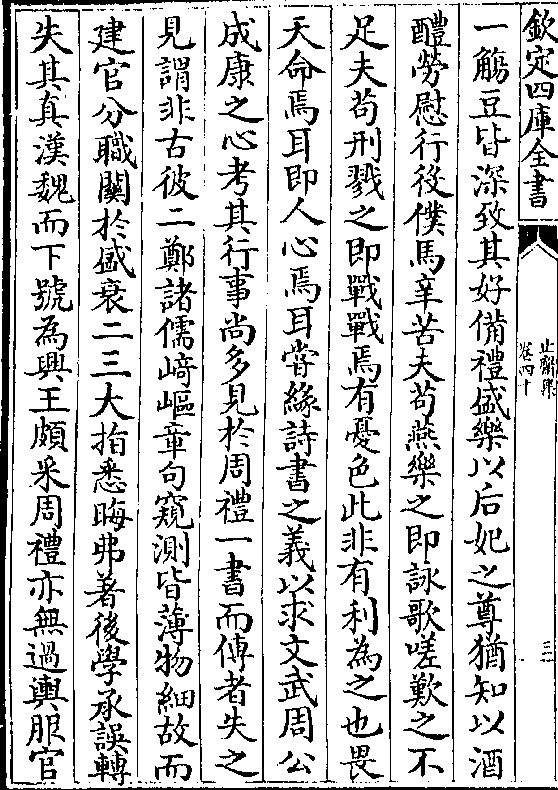 欽定四庫全書
止齋集
卷四十
三
一觴豆皆深致其好備禮盛樂以后妃之尊猶知以酒
醴勞慰行役僕馬辛苦夫苟燕樂之即詠歌嗟歎之不
足夫苟刑戮之即戰戰焉有憂色此非有利為之也畏
天命焉耳即人心焉耳嘗緣詩書之義以求文武周公
成康之心考其行事尚多見於周禮一書而傳者失之
見謂非古彼二鄭諸儒崎嶇章句窺測皆薄物細故而
建官分職關於盛衰二三大指悉晦弗著後學承誤轉
失其真漢魏而下號為興王頗采周禮亦無過輿服官